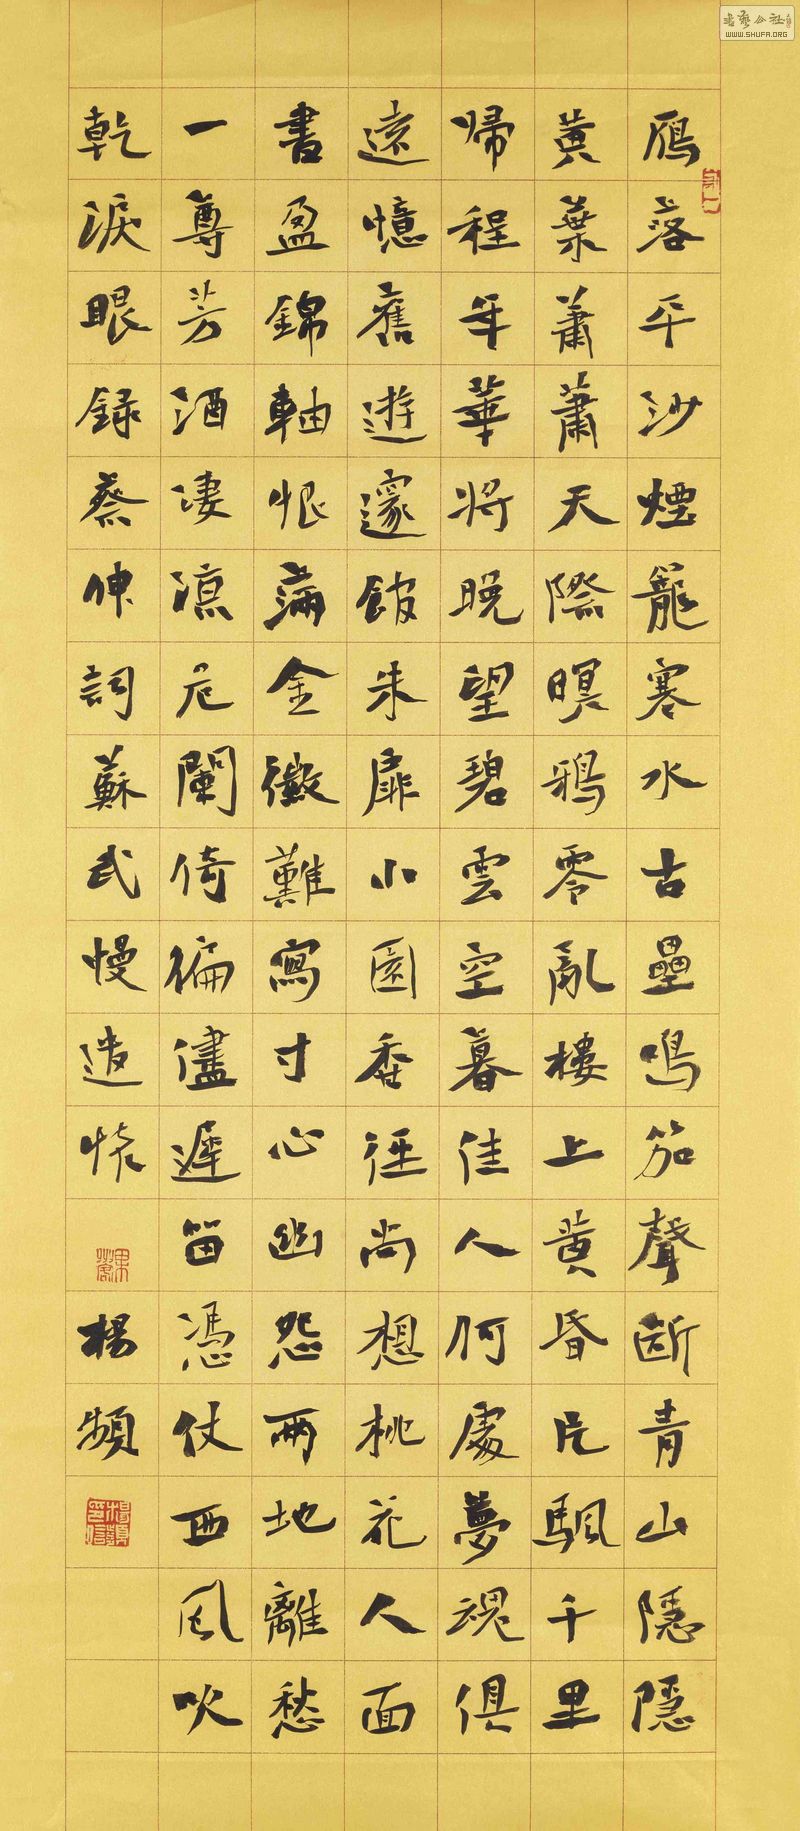 鴈落平沙煙籠寒水古壘鳴笳聲斷青山隱隱
黃葉蕭蕭天際暝鴉零亂樓上黃昏片颿千里
歸程年華將晚望碧雲空暮佳人何處夢魂俱
遠憶舊遊邃館朱扉小園香徑尚想桃花人面
書盈錦軸恨滿金徽難寫寸心幽怨兩地離愁
一尊芳酒淒涼危闌倚徧儘遲留憑仗西風吹
乾淚眼錄蔡伸詞蘇武慢遣懷
楊頻
書藝公社
WWW.SHUFA.ORG